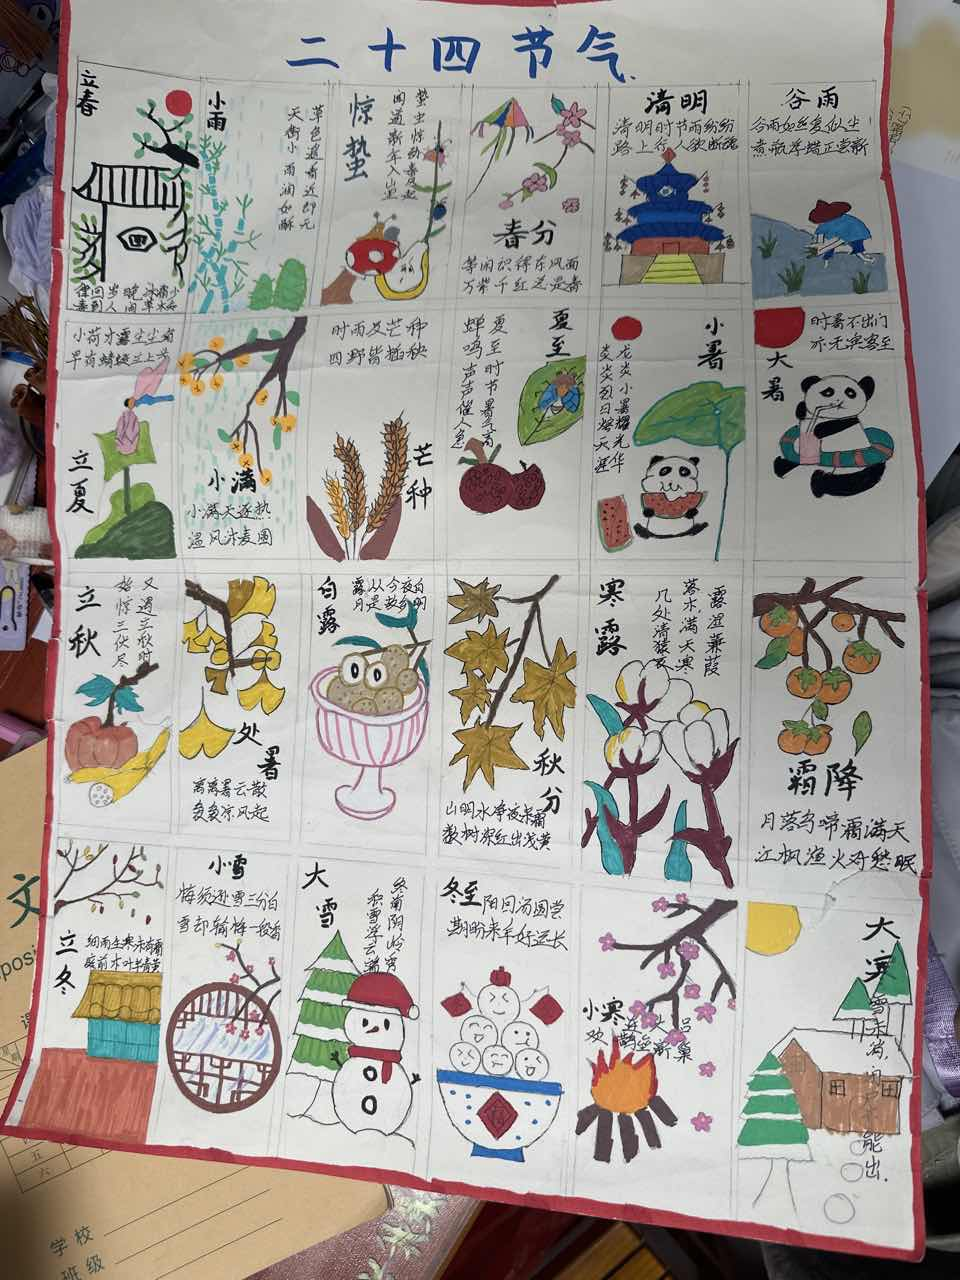 二十四节气
立春
律回岁晚冰霜少
春到人间草木知
小雨
天街小雨润如酥
草色遥看近却无
惊蛰
春分
等闲识得东风面
万紫千红总是春
清明
清明时节雨纷纷
路上行人欲断魂
谷雨
立夏
小荷才露尖尖角
早有蜻蜓立上头
小满
小满天逐热
温风沐麦圆
时雨及芒种
四野皆插秧
芒种
夏至
夏至时节暑气高
蝉鸣声声催人
小暑
大暑
时暑不出门
亦无宾客至
立秋
又遇立秋时
始惊三伏尽
处暑
离离暑云散
凉风起
白露
露从今夜白
月是故乡明
秋分
山明水净夜来霜
数树深红出浅黄
寒露
露湿蒹葭
落木满天寒
几处清猿
霜降
月落乌啼霜满天
江枫渔火对愁眠
立冬
细雨生寒未有霜
庭前木叶半青黄
小雪
梅须逊雪三分白
雪却输梅一段香
大雪
终南阴岭秀
积雪浮云端
冬至
阳回汤圆尝
期盼来年好运长
小寒
大寒
雪未消
闭户不能出
文
学校
班级
五
六